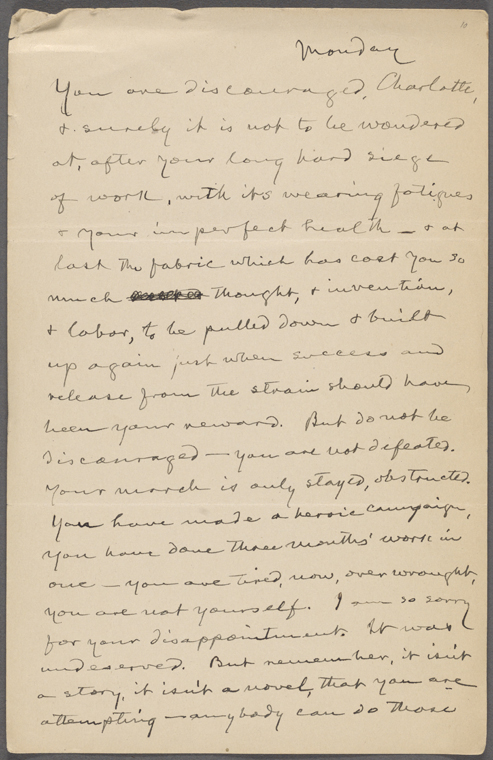 Monday
You are discouraged, Charlotte,
& surely it is not to be wondered
at, after your long hard siege
of work, with its wearing fatigues
& your imperfect health — & at
last the fabric which has cost you so
much thought, & invention,
& labor, to be pulled down & built
up again just when success and
release from the strain should have
been your reward. But do not be
discouraged — you are not defeated.
Your march is only stayed, obstructed.
You have made a heroic campaign,
you have done three months' work in
one — you are tired, now, over wrought,
you are not yourself. I am so sorry
for your disappointment. It was
undeserved. But remember, it isn't
a story, it isn't a novel, that you are
attempting — anybody can do those